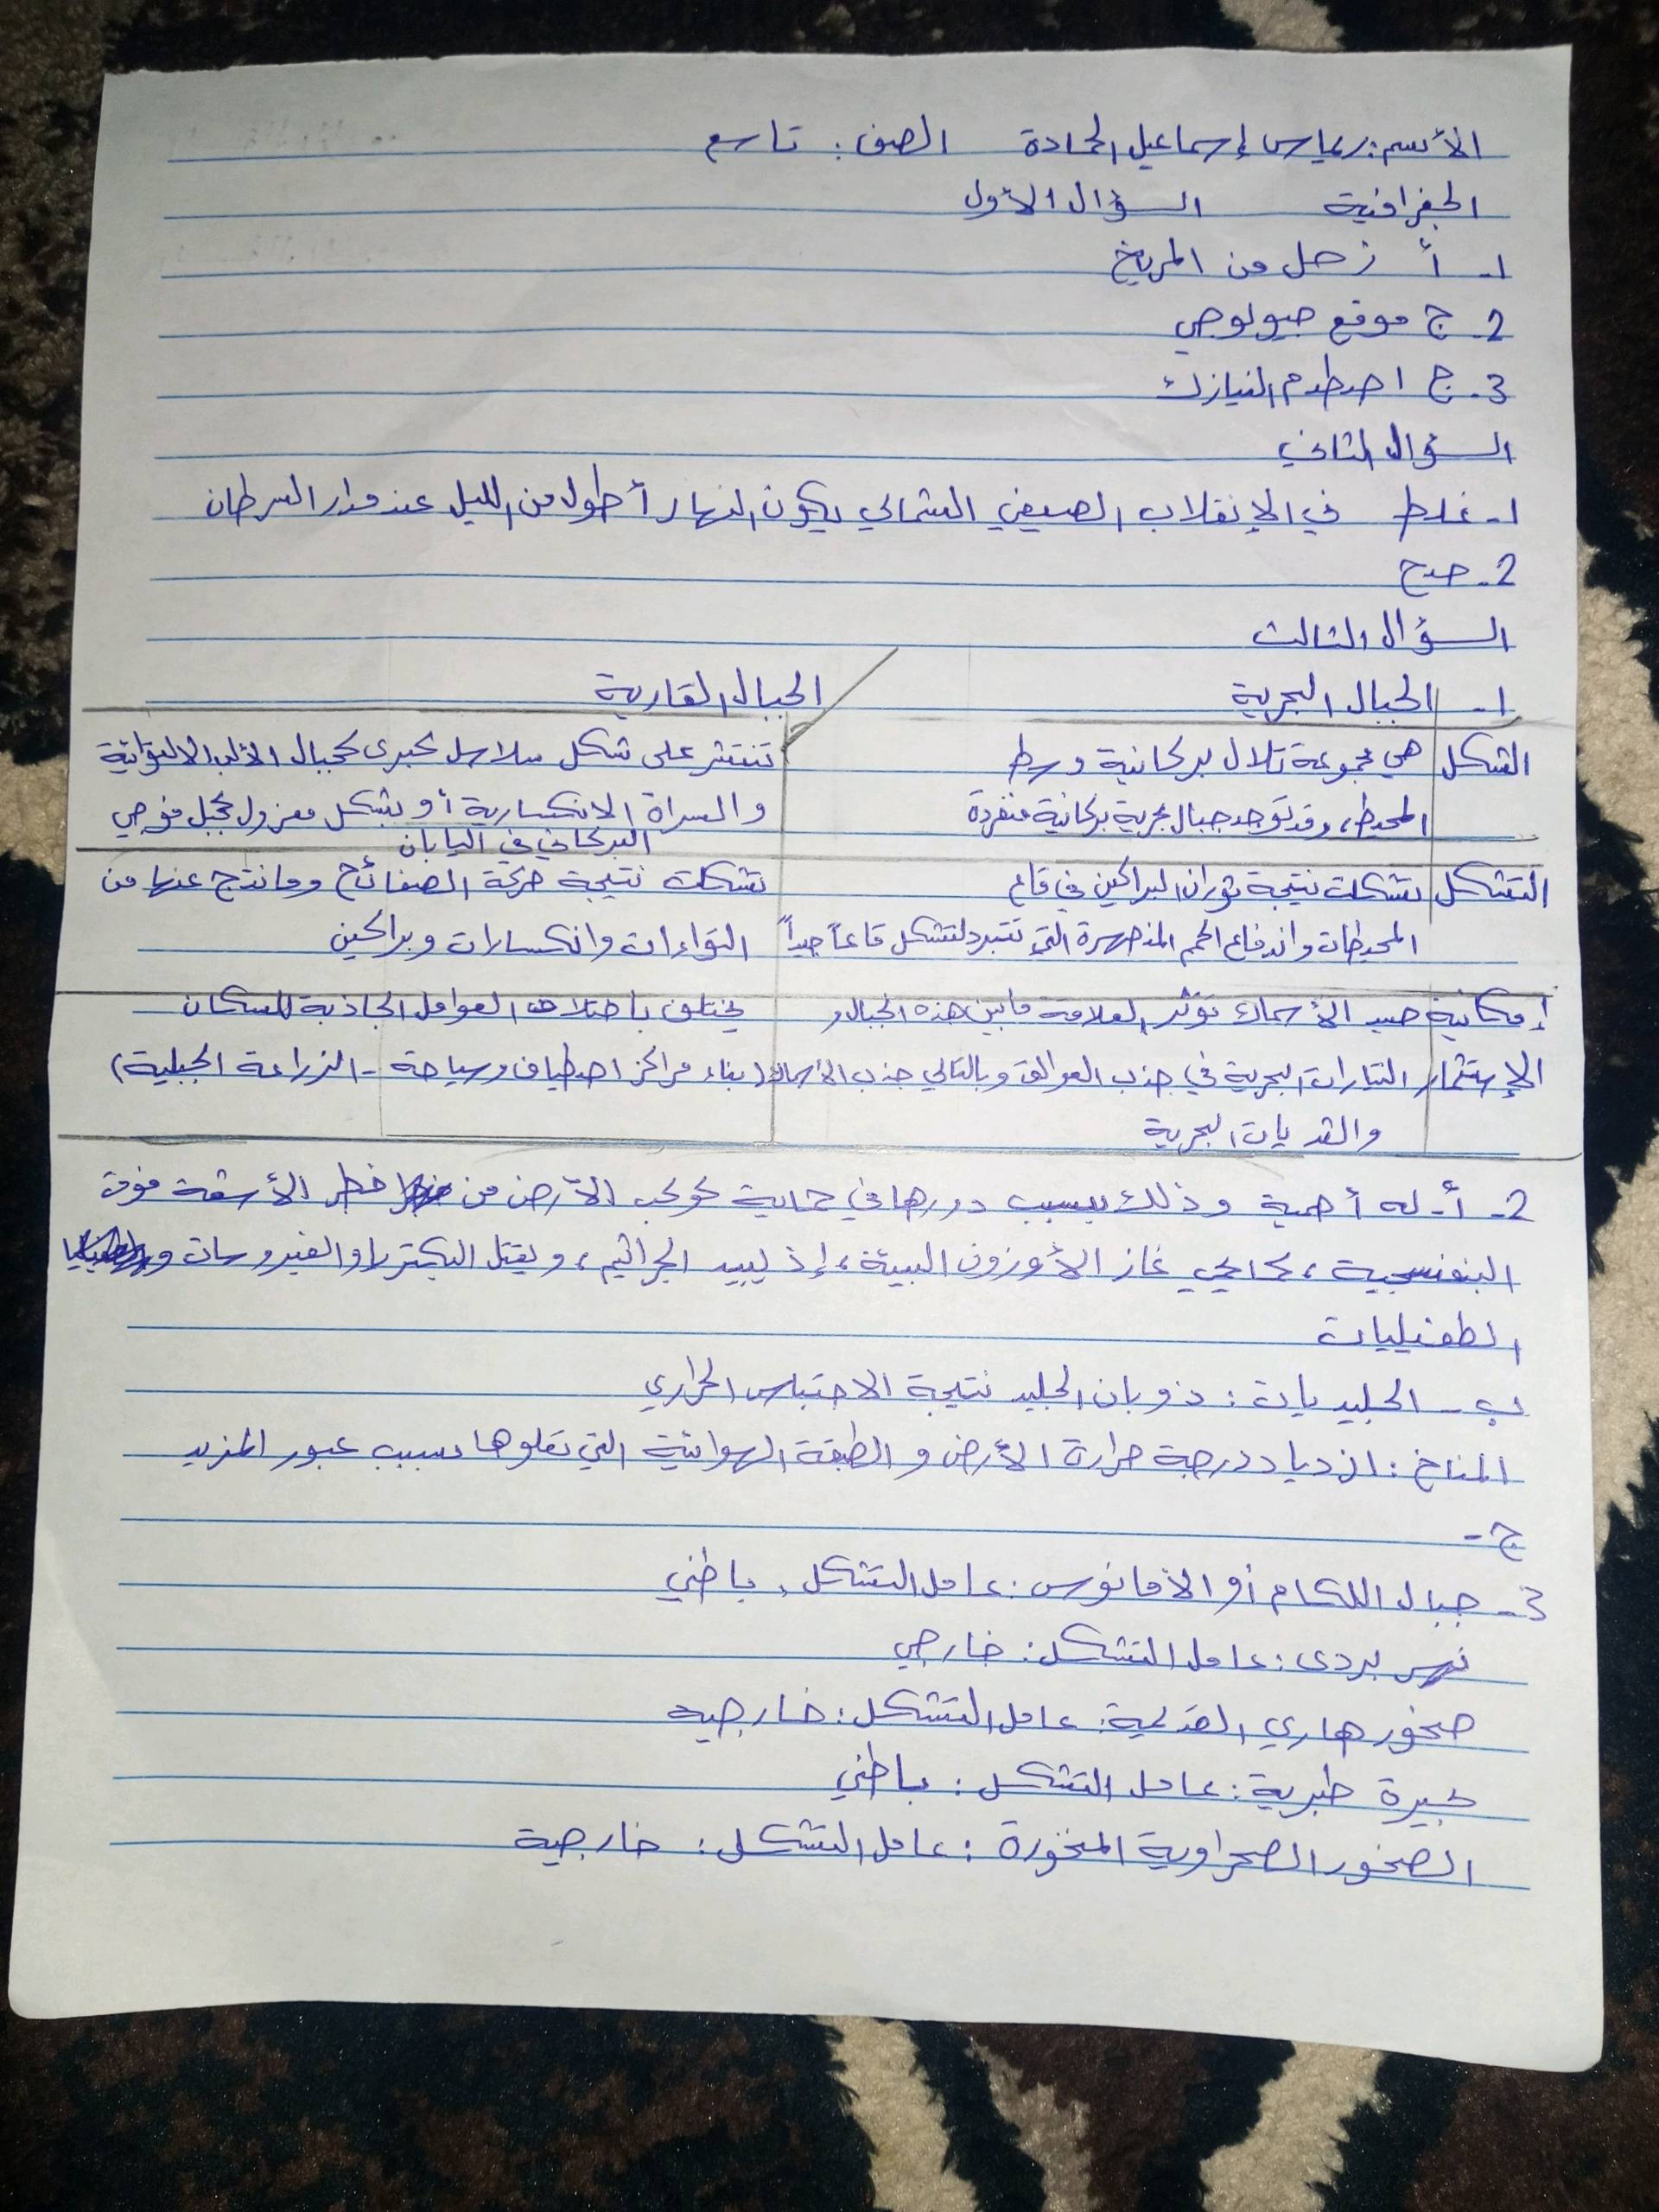 الأسم: ريماس إسماعيل الحمادة الصف: تاسع
الجغرافية السؤال الأول
1- أ زحل من المريخ
2- ج موقع جيولوجي
3- ج اصطدم النيازك
السؤال الثاني
1- غلط في الإنقلاب الصيفي الشمالي يكون النهار أطول من الليل عند مدار السرطان
2- صح
السؤال الثالث
1- الجبال البحرية الجبال القارية
الشكل هي مجموعة تلال بركانية وسط تنتشر على شكل سلاسل كبرى كجبال الألب الالتوائية
المحيط، وقد توجد جبال بحرية بركانية منفردة والسراة الانكسارية أو بشكل معزول كجبل فوجي
البركاني في اليابان
التشكل تشكلت نتيجة ثوران البراكين في قاع تشكلت نتيجة حركة الصفائح وما نتج عنها من
المحيطات واندفاع الحمم المنصهرة التي تتبرد لتشكل قاعاً جيداً التواءات وانكسارات وبراكين
إمكانية صيد الأسماك تؤثر العلاقة ما بين هذه الجبال و يختلف باختلاف العوامل الجاذبة للسكان
الإستثمار التيارات البحرية في جذب العوالق وبالتالي جذب الأسماك (بناء مراكز اصطياف وسياحة - الزراعة الجبلية)
والثدييات البحرية
2- أ- له أهمية وذلك بسبب دورها في حماية كوكب الأرض من خطر الأشعة فوق
البنفسجية، كما يحمي غاز الأوزون البيئة، إذ يبيد الجراثيم، ويقتل البكتريا والفيروسات و
الطفيليات
ب- الجليديات: ذوبان الجليد نتيجة الاحتباس الحراري
المناخ: ازدياد درجة حرارة الأرض والطبقة الهوائية التي تعلوها بسبب عبور المزيد
ج-
3- جبال اللكام أو الأمانوس: عامل التشكل: باطني
نهر بردى: عامل التشكل: خارجي
صخور هاري القديمة: عامل التشكل: خارجيه
بحيرة طبرية: عامل التشكل: باطني
الصخور الصحراوية المنخورة: عامل التشكل: خارجية